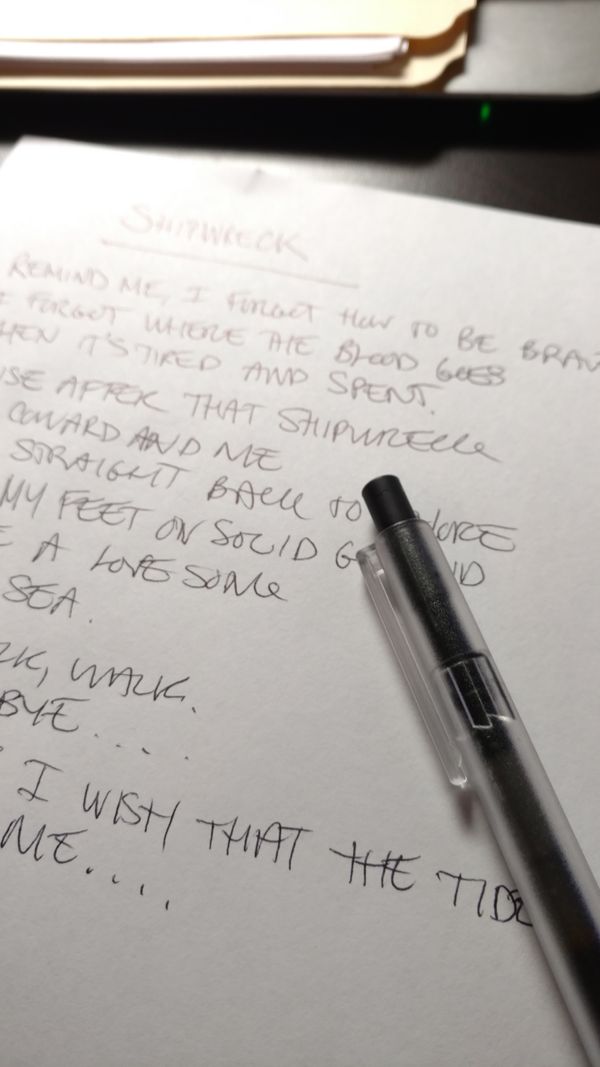 SHIPWRECK
REMIND ME, I FORGOT HOW TO BE
FORGOT WHERE THE BLOOD GOES
IT'S TIRED AND SPENT.
AFTER THAT SHIPWRECK
COWARD AND ME
STRAIGHT BACK TO
MY FEET ON SOLID
A LONESOME
SEA.
WALK.
BYE....
I WISH THAT THE
ME....